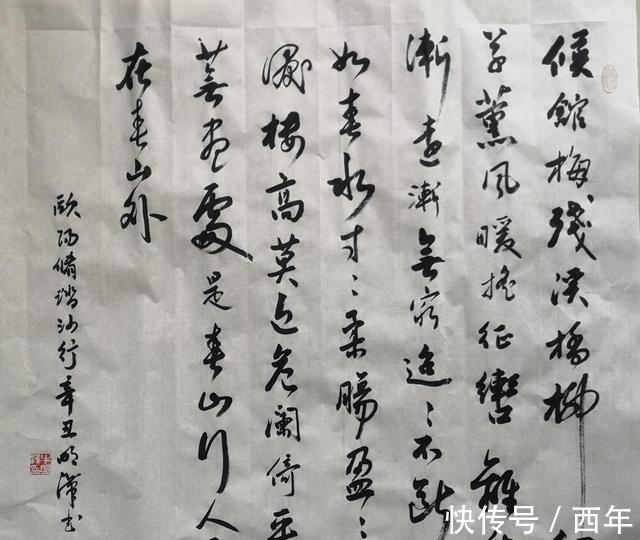 候館梅殘溪橋柳
草薰風暖搖征轡離
漸遠漸無窮迢〻不斷
如春水寸〻柔腸盈〻
淚樓高莫近危闌倚平
蕪盡處是春山行人
在春山外
歐陽脩踏沙行辛丑明漢書
快传号 / 西年